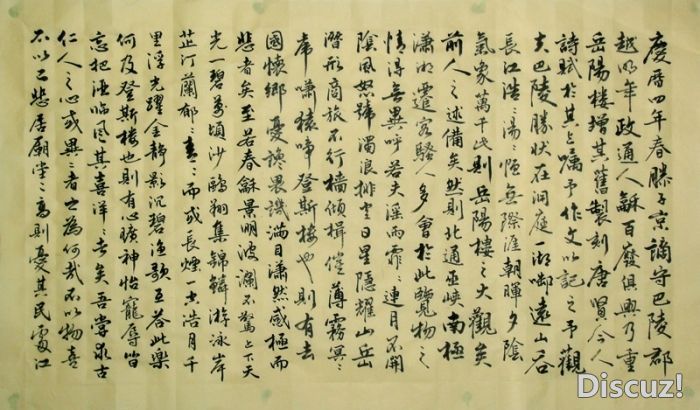 慶曆四年春滕子京謫守巴陵郡
越明年政通人龢百廢俱興乃重
岳陽樓增其舊製刻唐賢今人
詩賦於其上囑予作文以記之予觀
夫巴陵勝狀在洞庭一湖啣遠山吞
長江浩々湯々橫無際涯朝暉夕陰
氣象萬千此則岳陽樓之大觀矣
前人之述備矣然則北通巫峽南極
瀟湘遷客騷人多會於此覽物之
情得無異乎若夫淫雨霏々連月不開
陰風怒號濁浪排空日星隱耀山岳
潛形商旅不行檣傾楫摧薄霧冥々
虎嘯猿啼登斯樓也則有去
國懷鄉憂讒畏譏滿目蕭然感極而
悲者矣至若春龢景明波瀾不驚上下天
光一碧萬頃沙鷗翔集錦鱗游泳岸
芷汀蘭郁々青々而或長煙一空浩月千
里浮光躍金靜影沉碧漁歌互答此樂
何及登斯樓也則有心曠神怡寵辱皆
忘把酒臨風其喜洋々者矣吾嘗求古
仁人之心或異二者之為何哉不以物喜
不以己悲居廟堂之高則憂其民處江
Discuz!